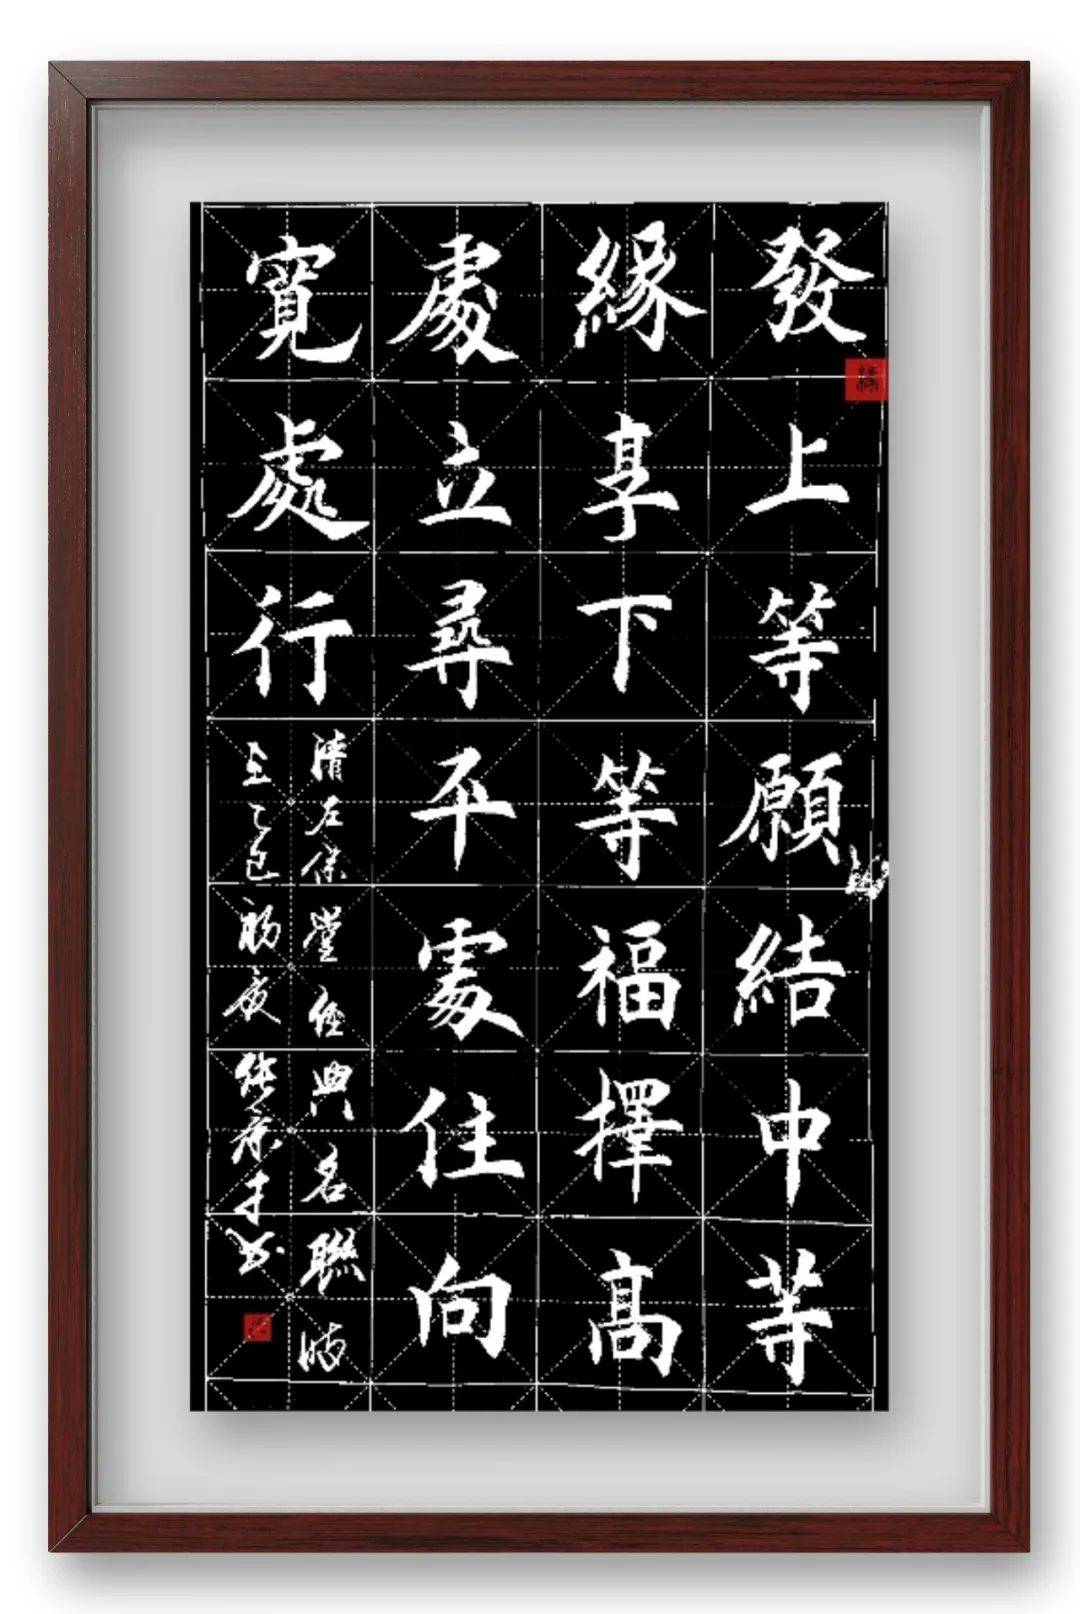 發上等願結中等
緣享下等福擇高
處立尋平處住向
寬處行
清左保堂經典名聯
乙巳初夏
书
緣